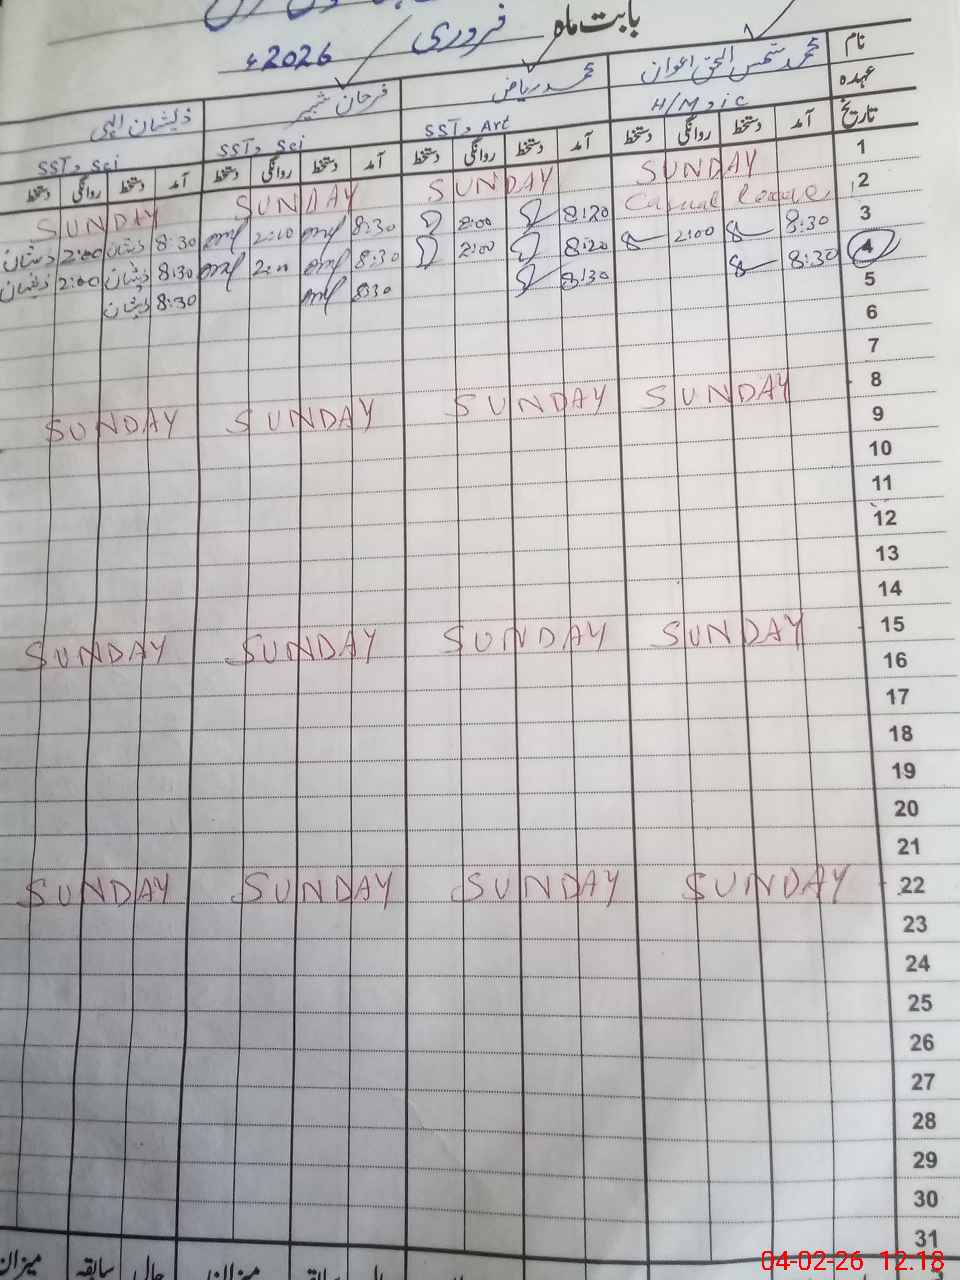 بابت ماہ فروری 2026ء
نام محمد شمس الحق اعوان محمد ریاض فرحان شبیر ذیشان الہی
عہدہ H/M SST, Art SST, Sci SST, Sci
تاریخ آمد دستخط روانگی دستخط آمد دستخط روانگی دستخط آمد دستخط روانگی دستخط آمد دستخط روانگی دستخط
1 SUNDAY SUNDAY SUNDAY SUNDAY
2 Casual Leave 8:20 2:00 8:30 2:10 8:30 ذیشان 2:00 ذیشان
3 8:30 2:00 8:20 2:00 8:30 8:30 ذیشان 2:00 ذیشان
4 8:30 8:30 8:30 8:30 ذیشان
5
6
7
8 SUNDAY SUNDAY SUNDAY SUNDAY
9
10
11
12
13
14
15 SUNDAY SUNDAY SUNDAY SUNDAY
16
17
18
19
20
21
22 SUNDAY SUNDAY SUNDAY SUNDAY
23
24
25
26
27
28
29
30
31
میزان سابقہ حالی میزان
04-02-26 12.18